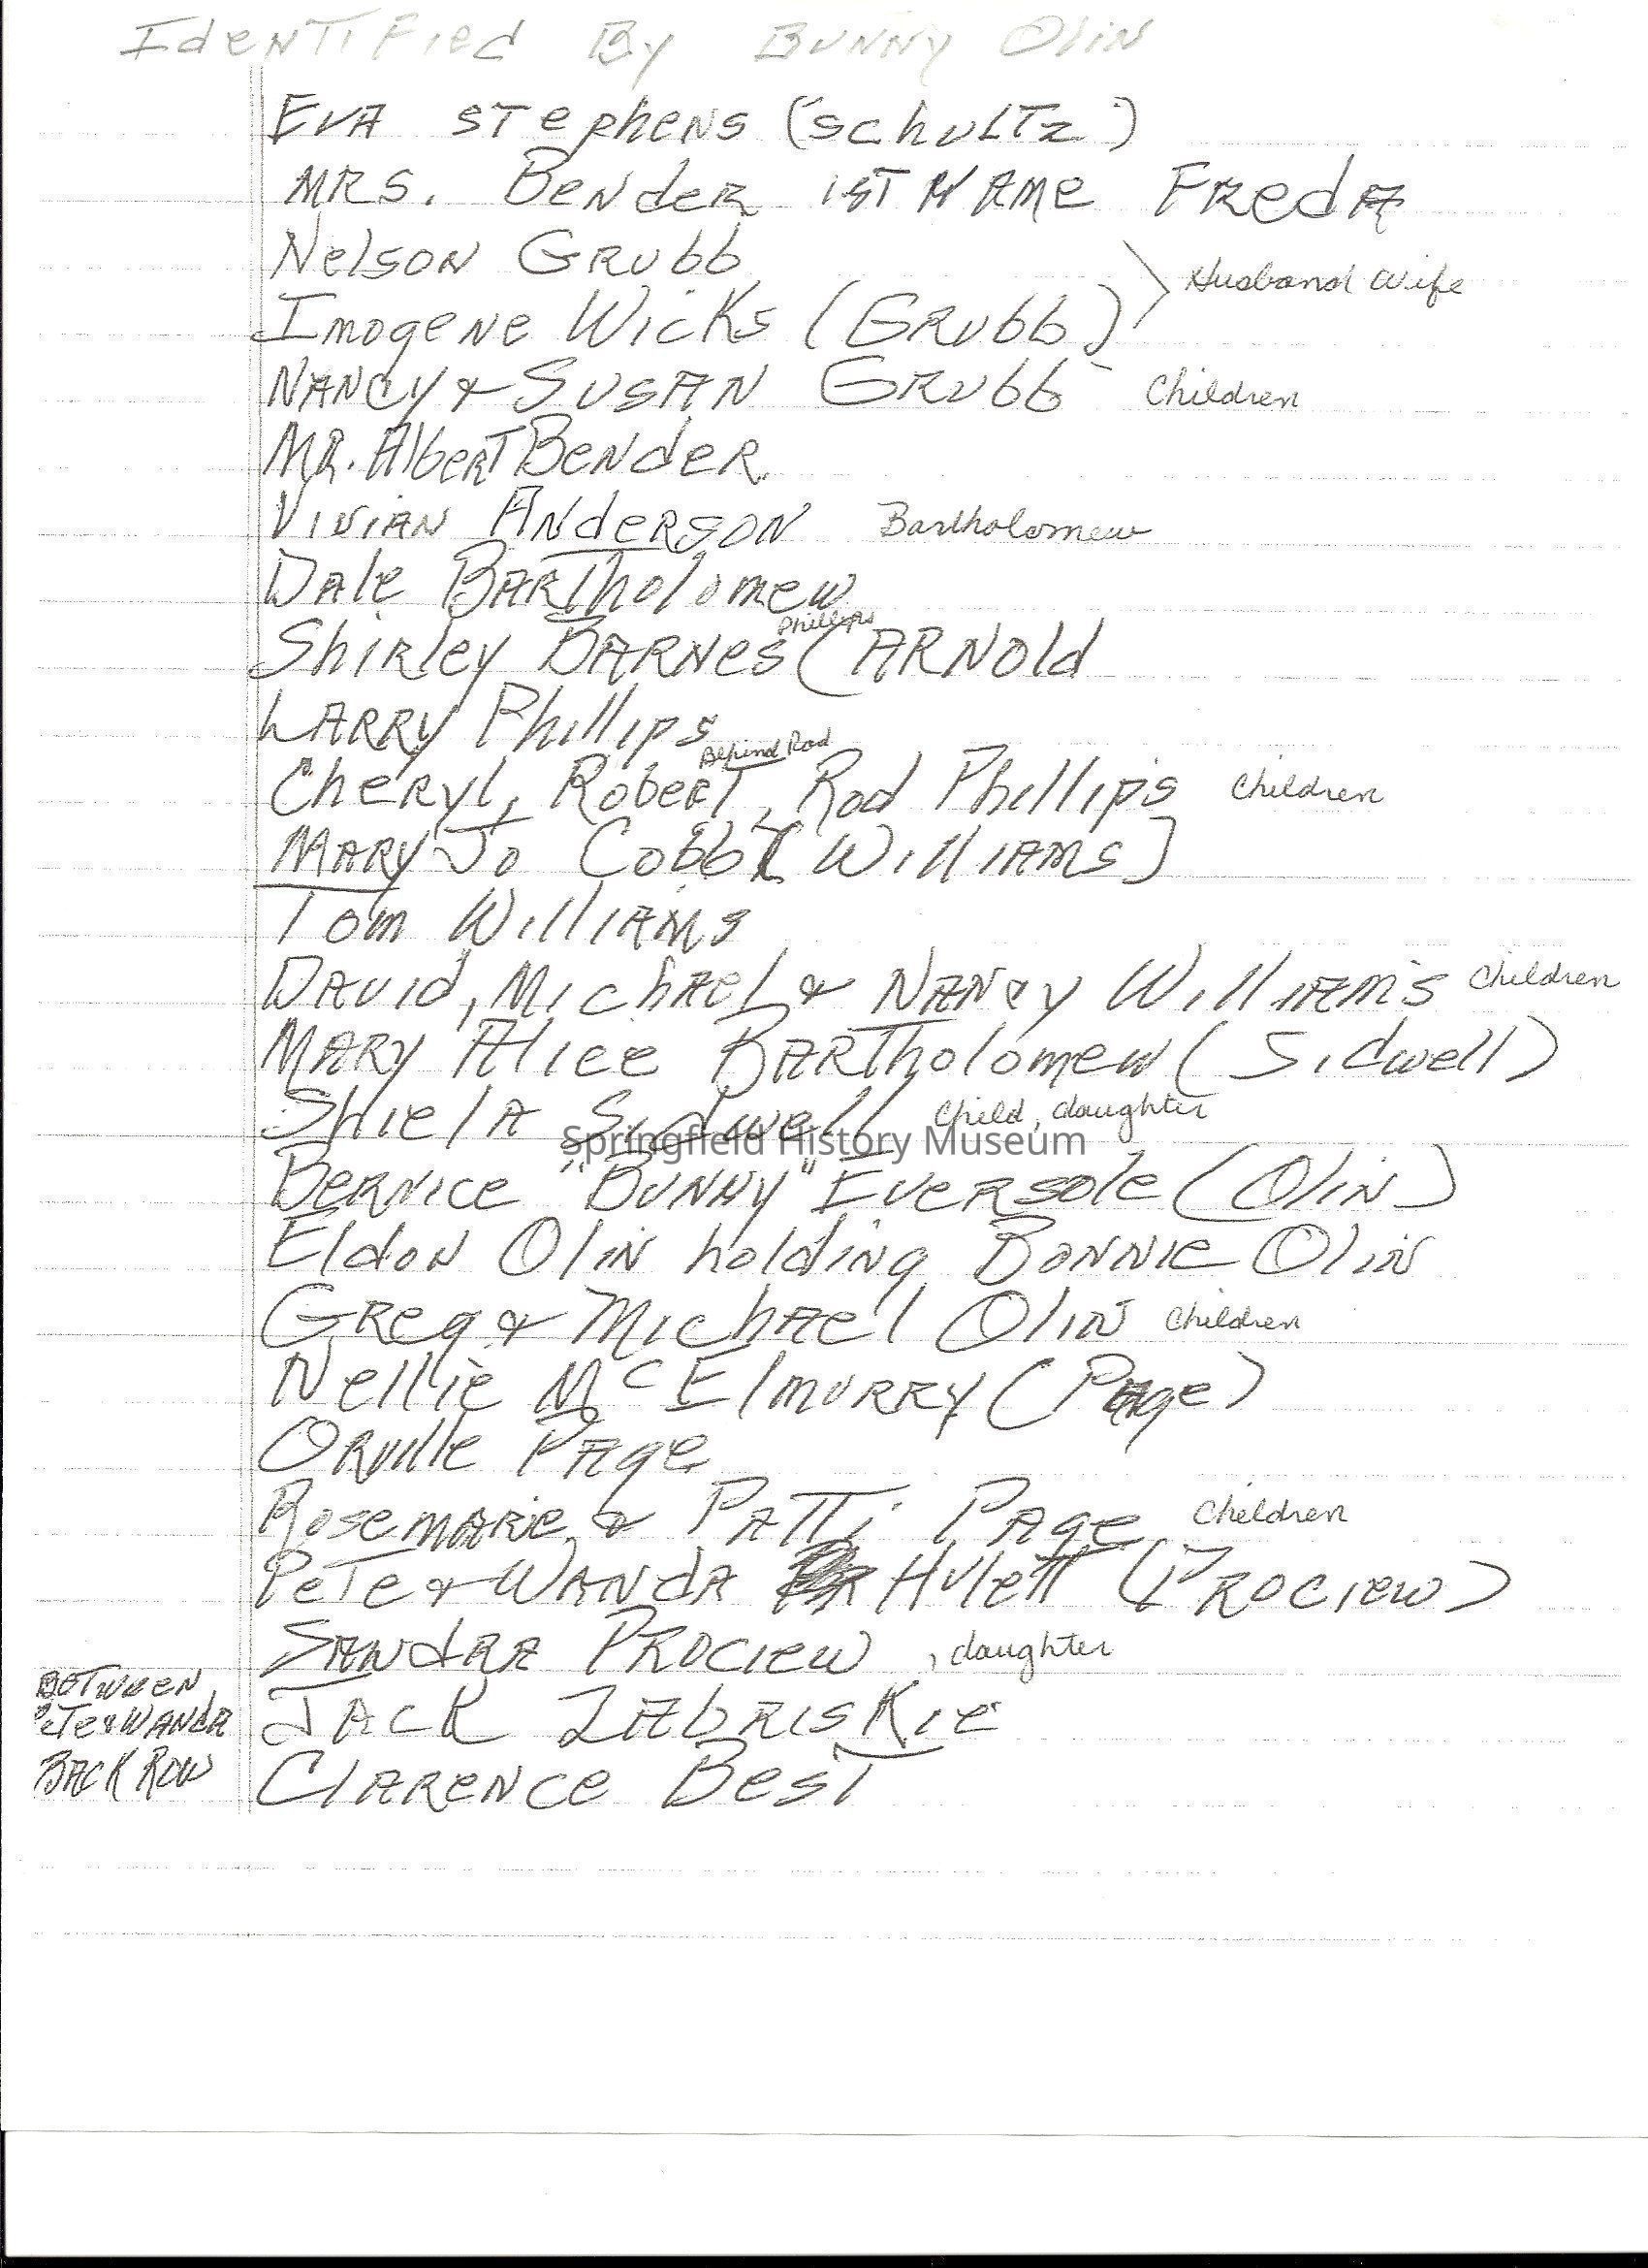 Identified By Bunny Olin
Eva Stephens (Schultz)
Mrs. Bender 1st Name Freda
Nelson Grubb
Husband Wife
Imogene Wicks (Grubb)
Nancy & Susan Grubb - Children
Mr. Albert Bender
Vivian Anderson Bartholomew
Dale Bartholomew
Phillips
Shirley Barnes (Arnold
Larry Phillips
Behind Rod
Cheryl, Robert, Rod Phillips Children
Mary Jo Cobb [Williams]
Tom Williams
David, Michael & Nancy Williams Children
Mary Alice Bartholomew (Sidwell)
Shiela Sidwell Child, daughter
Springfield History Museum
Bernice "Bunny" Eversole (Olin)
Eldon Olin holding Bonnie Olin
Greg & Michael Olin Children
Nellie McElmurry (Page)
Orville Page
Rosemarie & Patti Page Children
Pete & Wanda Hulett (Prociew)
Sandra Prociew, daughter
Between
Pete & Wanda
Back Row
Jack Zabriskie
Clarence Best